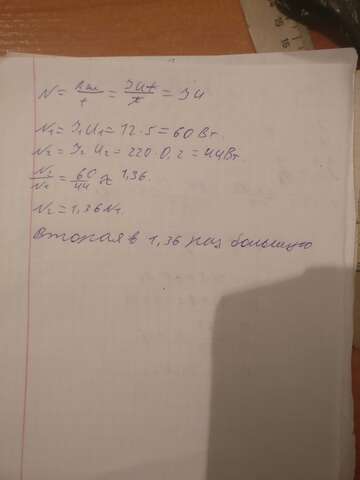 N = Aэл/t = IUt/t = IU
N₁ = I₁U₁ = 12·5 = 60 Вт.
N₂ = I₂ U₂ = 220·0,2 = 44Вт.
N₂/N₁ = 60/44 ≈ 1,36.
N₂ = 1,36N₁.
Вторая в 1,36 раз большую